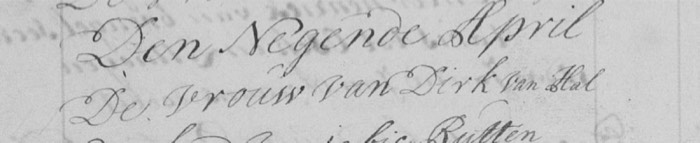 Den Negende April
De Vrouw van Dirk van Hal
Rutten